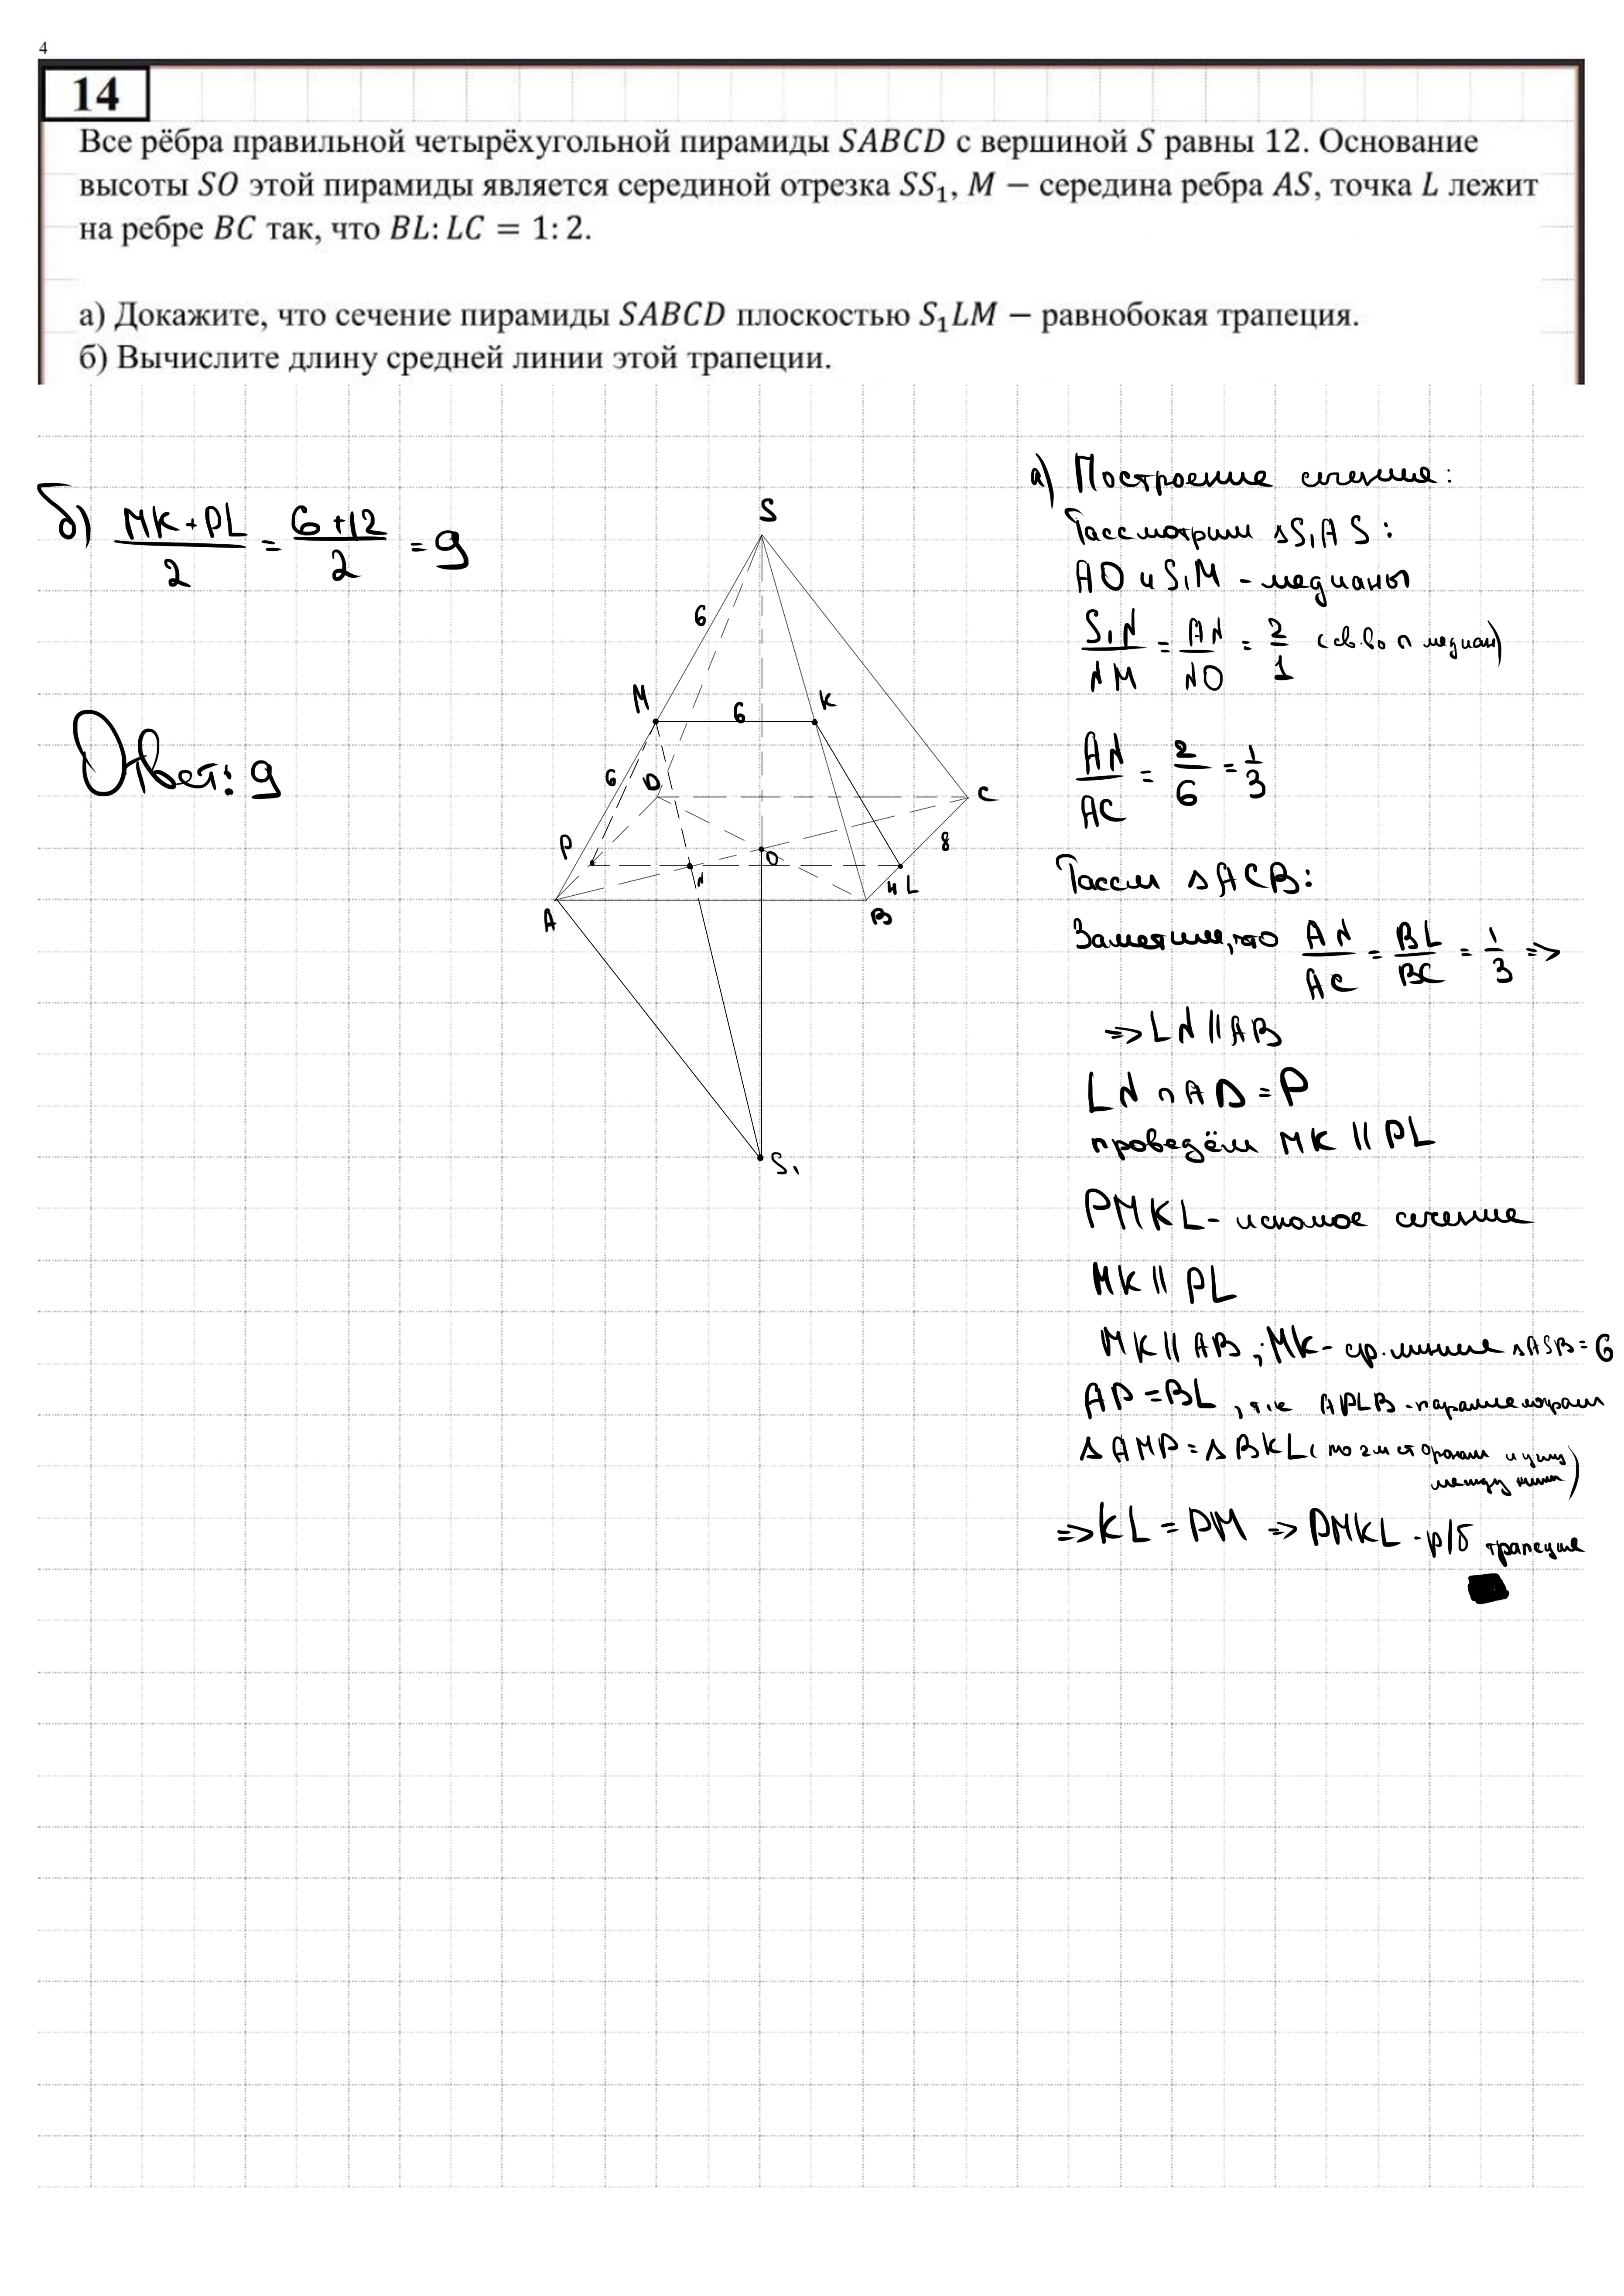 4
14
Все рёбра правильной четырёхугольной пирамиды SABCD с вершиной S равны 12. Основание
высоты SO этой пирамиды является серединой отрезка SS₁, M − середина ребра AS, точка L лежит
на ребре BC так, что BL: LC = 1: 2.
а) Докажите, что сечение пирамиды SABCD плоскостью S₁LM − равнобокая трапеция.
б) Вычислите длину средней линии этой трапеции.
б) (MK + PL)/2 = (6 + 12)/2 = 9
Ответ: 9
S
6
M
6
K
6
D
C
P
O
8
N
4 L
A
B
S₁
а) Построение сечения:
Рассмотрим △S₁AS:
AO и S₁M - медианы
S₁N/NM = AN/NO = 2/1 (св-во п медиан)
AN/AC = 2/6 = 1/3
Рассм △ACB:
Заметим, что AN/AC = BL/BC = 1/3 =>
=> LN || AB
LN ∩ AD = P
проведём MK || PL
PMKL - искомое сечение
MK || PL
MK || AB ; MK - ср. линия △ASB = 6
AP = BL , т.к APLB - параллелограм
△AMP = △BKL ( по 2м сторонам и углу
между ними)
=> KL = PM => PMKL - р/б трапеция